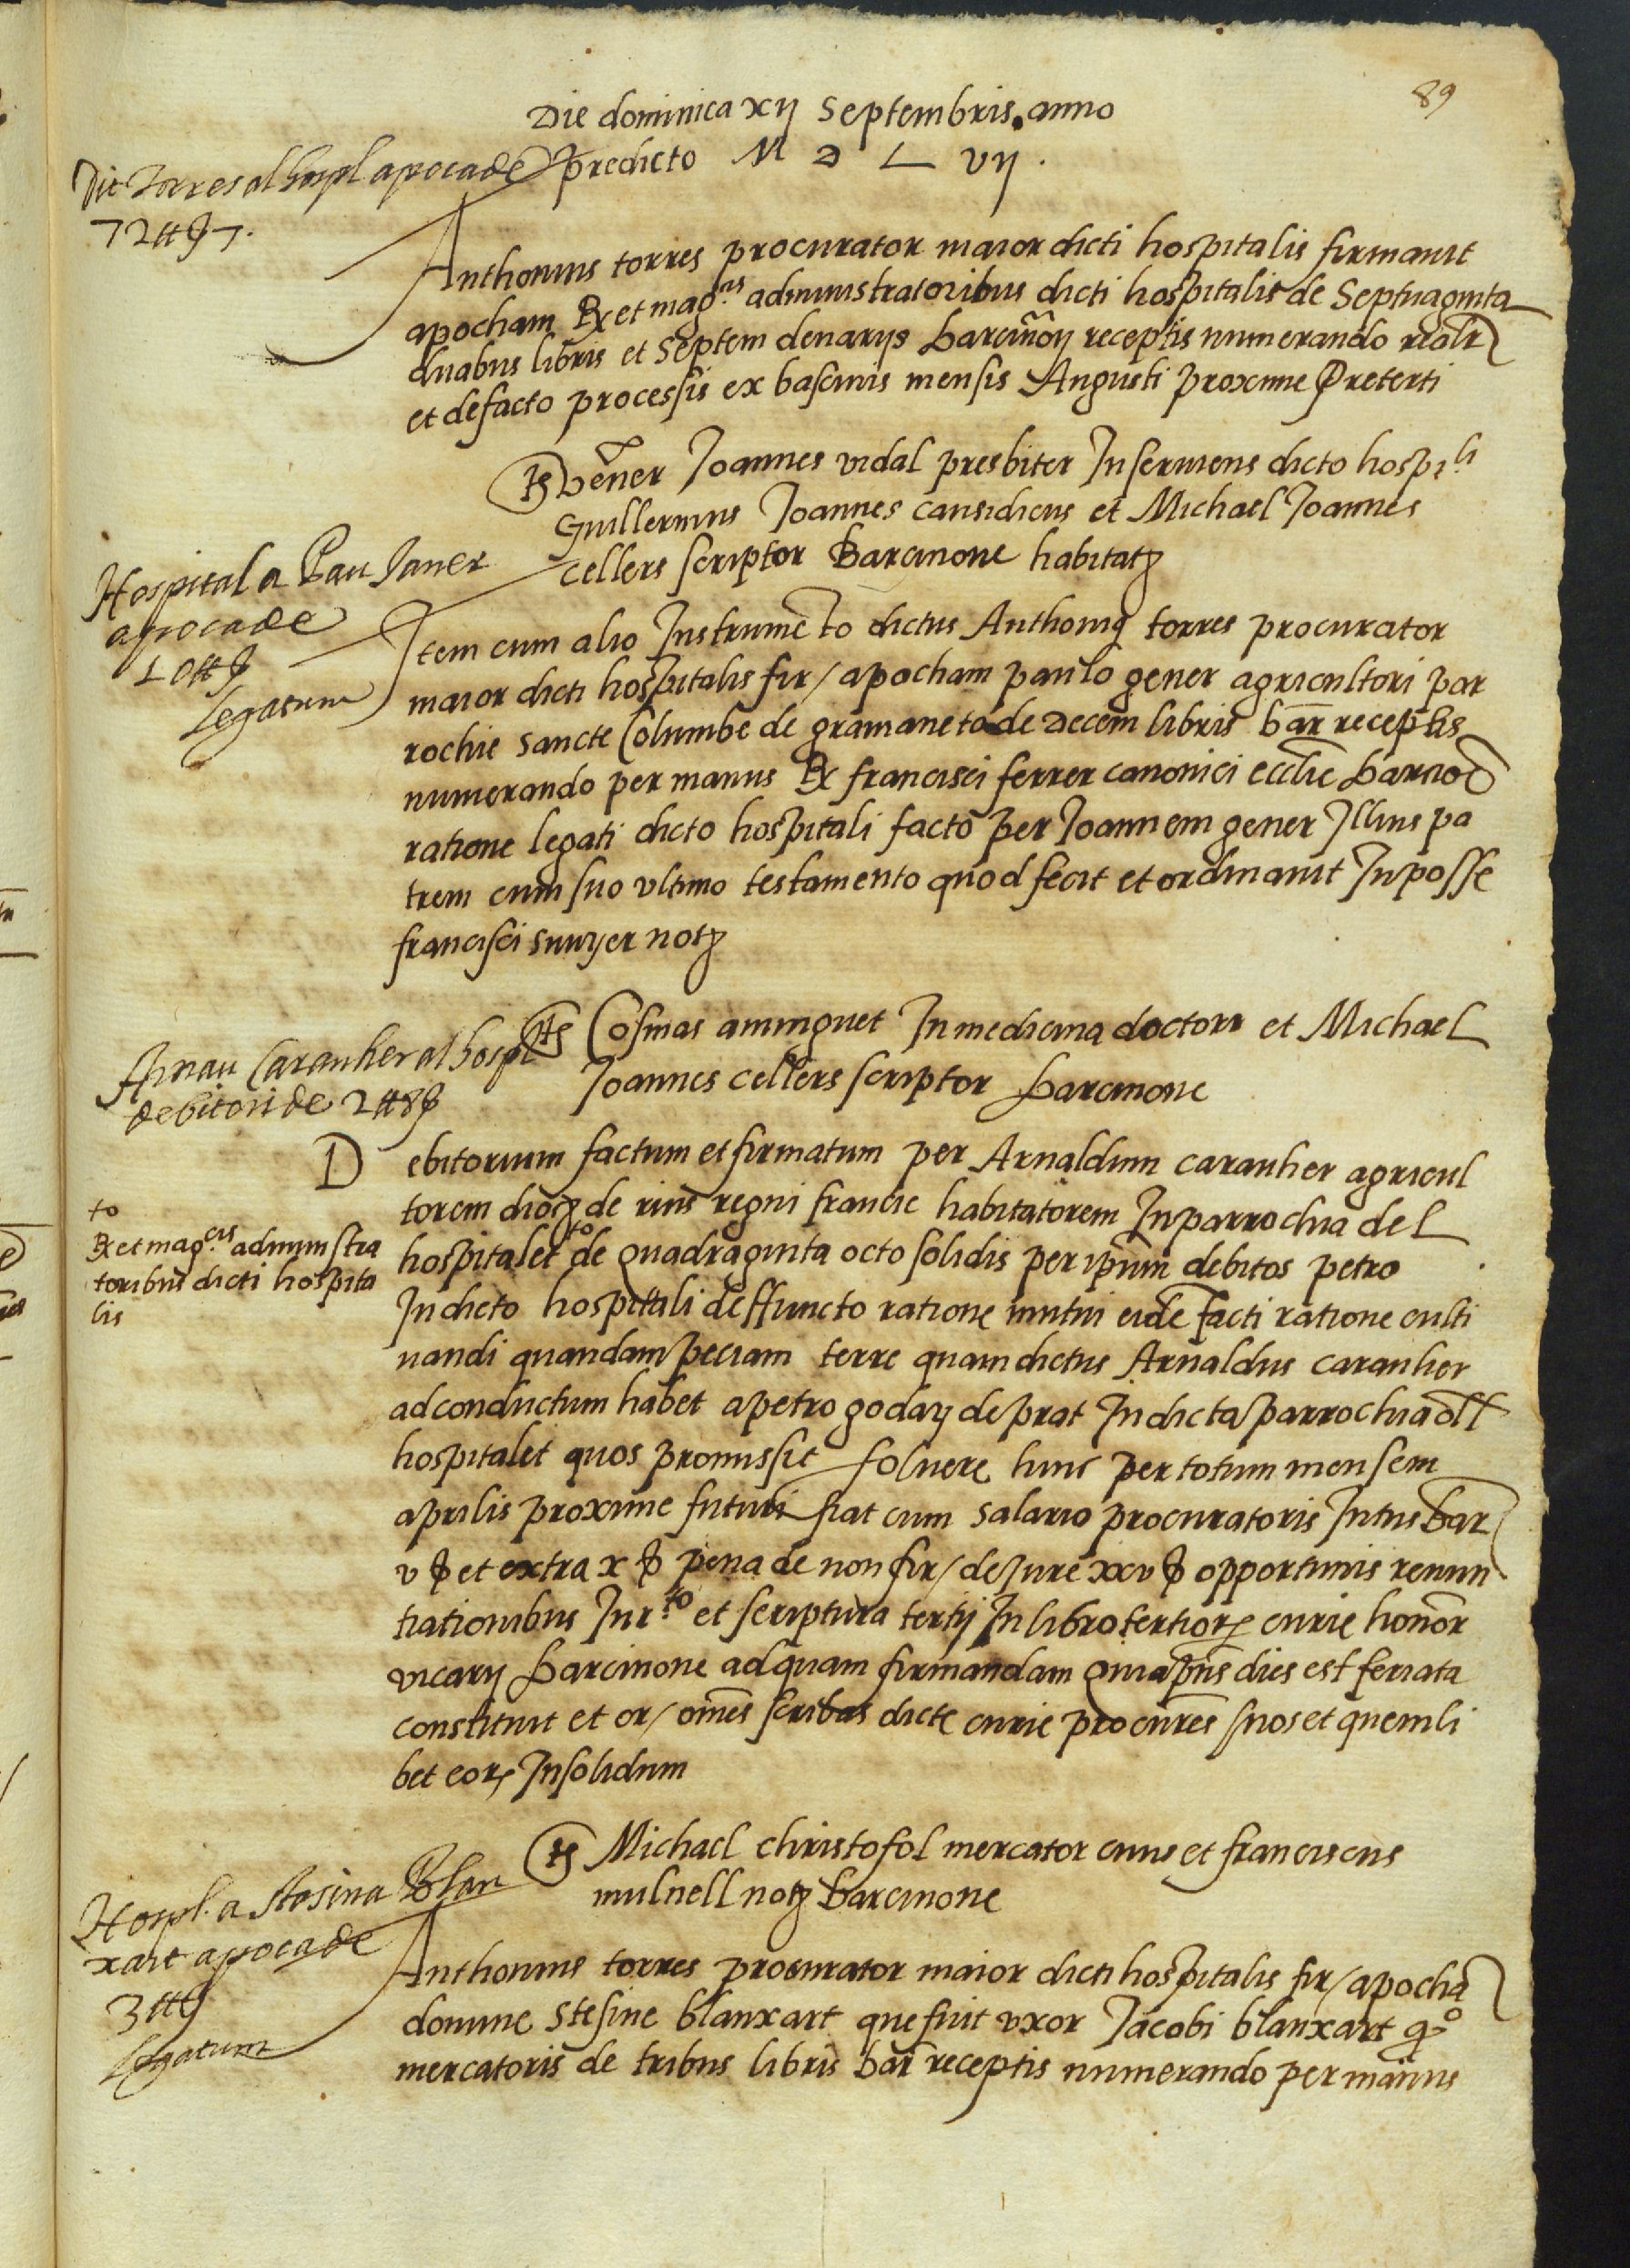 89
Die dominica xij Septembris anno
predicto M D L vij.
Dit Torres al hospl apoca de
72 ₶ § 7.
Anthonius torres procurator maior dicti hospitalis firmauit
apocham Rx et mag.cis administratoribus dicti hospitalis de Septuaginta
duabus libris et Septem denarijs barcinon̄ receptis numerando realr
et defacto processis ex bascinis mensis Augusti proxime preteriti
ts̄ vener̄ Joannes vidal presbiter Inseruiens dicto hospi.li
Guillermus Joannes causidicus et Michael Joannes
cellers scriptor Barcinone habitatꝫ
Hospital a Pau Janer
apoca de
10 ₶ §
Legatum
Item cum alio Instrumēto dictus Anthoniꝰ torres procurator
maior dicti hospitalis fir/ apocham paulo gener agricultori par
rochie sancte Columbe de gramaneto de Decem libris bar̄ receptis
numerando per manus Rx francisci ferrer canonici ecclie barcin̄
ratione legati dicto hospitali facto per Joannem gener Illius pa
trem cum suo vltimo testamento quod fecit et ordinauit Inposse
francisci sunyer notꝫ
ts̄ Cosmas aminguet In medicina doctor et Michael
Joannes cellers scriptor barcinone
Arnau Carauher al hospl
debitori de 2 ₶ 8 §
Debitorium factum et firmatum per Arnaldum carauher agricul
torem diocꝫ de rius regni francie habitatorem Inparrochia del
hospitalet to de quadraginta octo solidis per ipsum debitos petro
to
Rx et mag.cis administra
toribus dicti hospita
lis
In dicto hospitali deffuncto ratione mutui eidē facti ratione culti
uandi quandam peciam terre quam dictus Arnaldus carauher
ad conductum habet a petro goday de prat In dicta parrochia dl
hospitalet quos promissit soluere hinc per totum mensem
aprilis proxime futuri fiat cum salario procuratoris Intus bar
v § et extra x § pena de non fir/ de Jure xxv § opportunis renun
tiationibus Jur.to et scriptura tertij In libro tertior̄ curie honor̄
vicarij barcinone ad quam firmandam quia pn̄s dies est feriata
constituit et or/ omēs scribas dicte curie procurēs suos et quemli
bet eor̄ Insolidum
ts̄ Michael christofol mercator ciuis et franciscus
mulnell notꝫ barcinone
Hospl. a Stesina Blan
xart apoca de
3 ₶ §
Legatum
Anthonius torres procurator maior dicti hospitalis fir/ apochā
domine Stesine blanxart que fuit vxor Jacobi blanxart qº
mercatoris de tribus libris bar̄ receptis numerando per manus